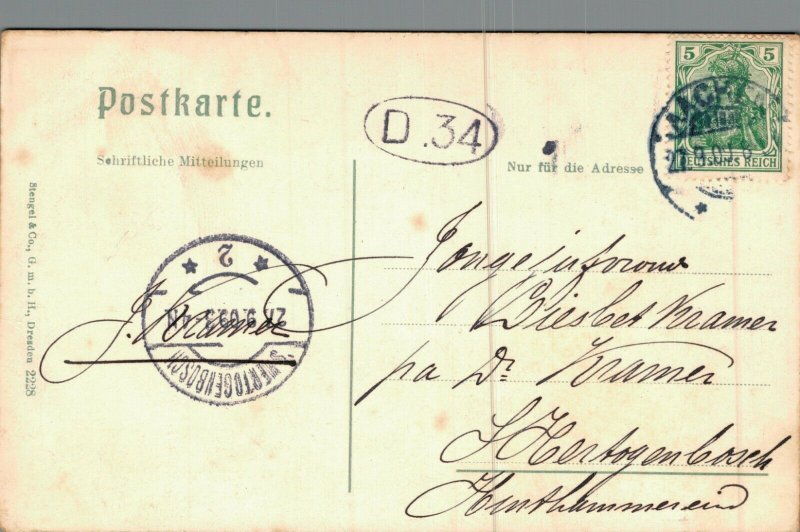 Postkarte.
Schriftliche Mitteilungen
Nur für die Adresse
D.34
5 5
DEUTSCHES REICH
AACHEN
Stengel & Co., G. m. b. H., Dresden 2228
2
'S HERTOGENBOSCH
J. Kramer
Jongejufvrouw
Wiesbet Kramer
pa Dr Kramer
S Hertogenbosch
Hinthammereind